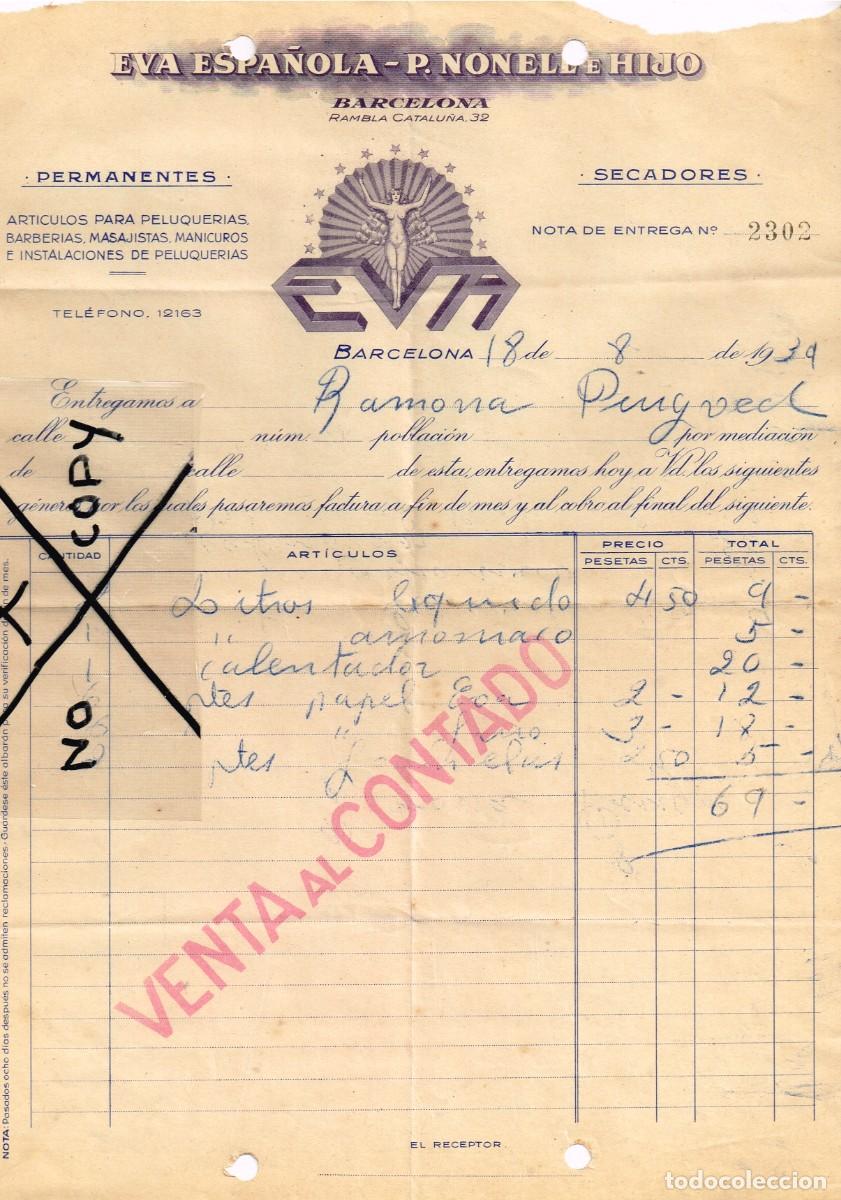 EVA ESPAÑOLA - P. NONELL E HIJO
BARCELONA
RAMBLA CATALUÑA, 32
· PERMANENTES ·
· SECADORES ·
ARTICULOS PARA PELUQUERIAS,
BARBERIAS, MASAJISTAS, MANICUROS
E INSTALACIONES DE PELUQUERIAS
NOTA DE ENTREGA Nº 2302
TELÉFONO. 12163
EVA
BARCELONA 18 de 8 de 1939
Entregamos a Ramona
calle núm. población por mediación
de calle de esta, entregamos hoy a Vd. los siguientes
géneros por los cuales pasaremos factura a fin de mes y al cobro al final del siguiente.
CANTIDAD ARTÍCULOS PRECIO TOTAL
PESETAS CTS. PESETAS CTS.
Litros liquido 4 50 9 -
1 " amoniaco 5 -
1 calentador 20 -
ptes papel Eva 2 - 12 -
" 3 - 18 -
ptes 2,50 5 -
69 -
VENTA AL CONTADO
NO COPY
NOTA: Pasados ocho días después no se admiten reclamaciones - Guárdese éste albarán para su verificación de fin de mes.
EL RECEPTOR
todocoleccion